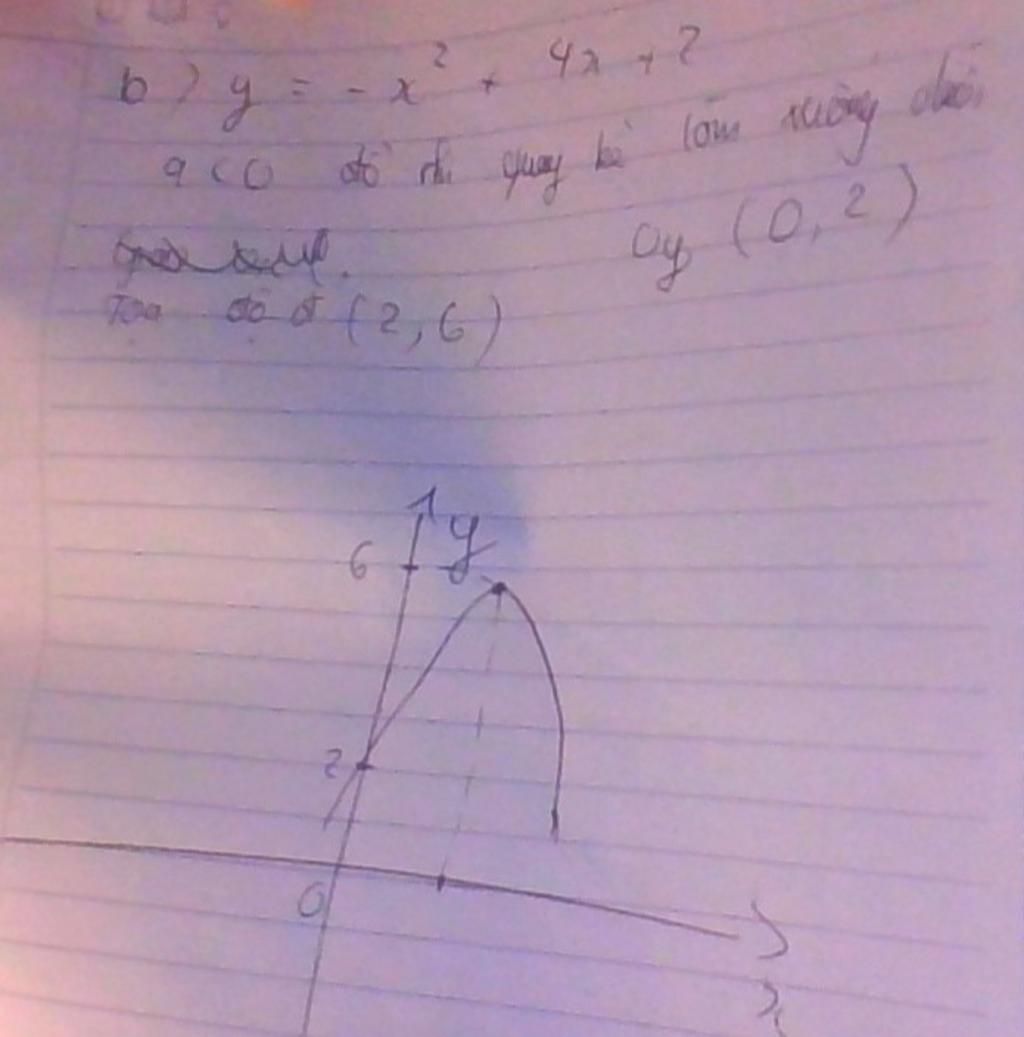 b) y = -x² + 4x + 2
a < 0 đồ thị quay bề lõm xuống dưới
Oy (0, 2)
Tọa độ đ (2, 6)
y
6
2
O
x